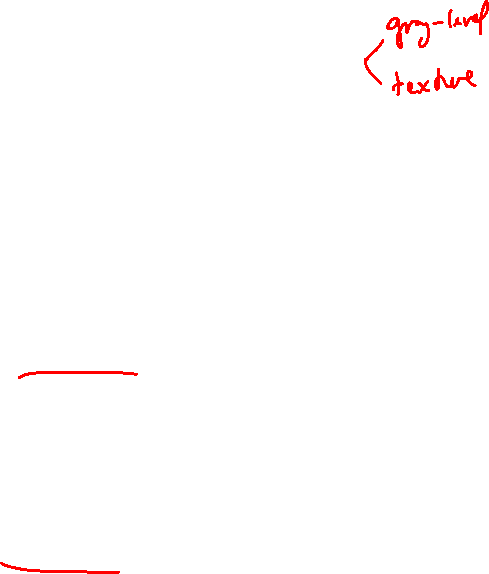 gray-level
texture